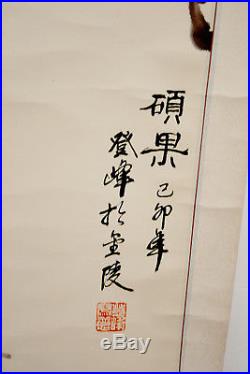 碩果 己卯年
登峰於金陵